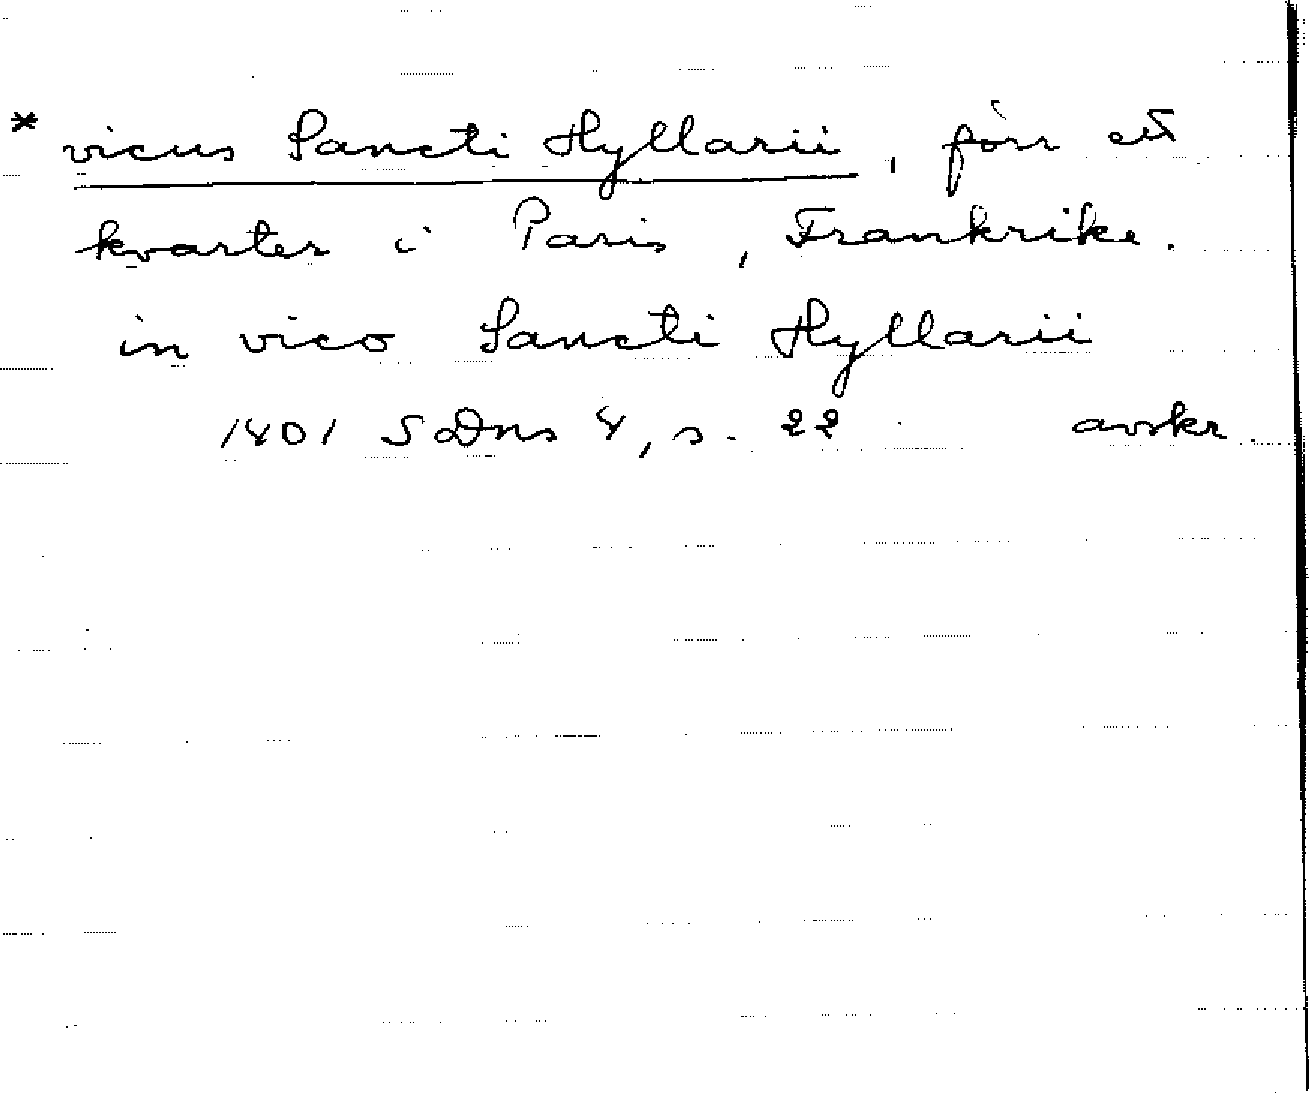 * vicus Sancti Hyllarii, förr ett
kvarter i Paris, Frankrike.
in vico Sancti Hyllarii
1401 SDns 4, s. 22 avskr